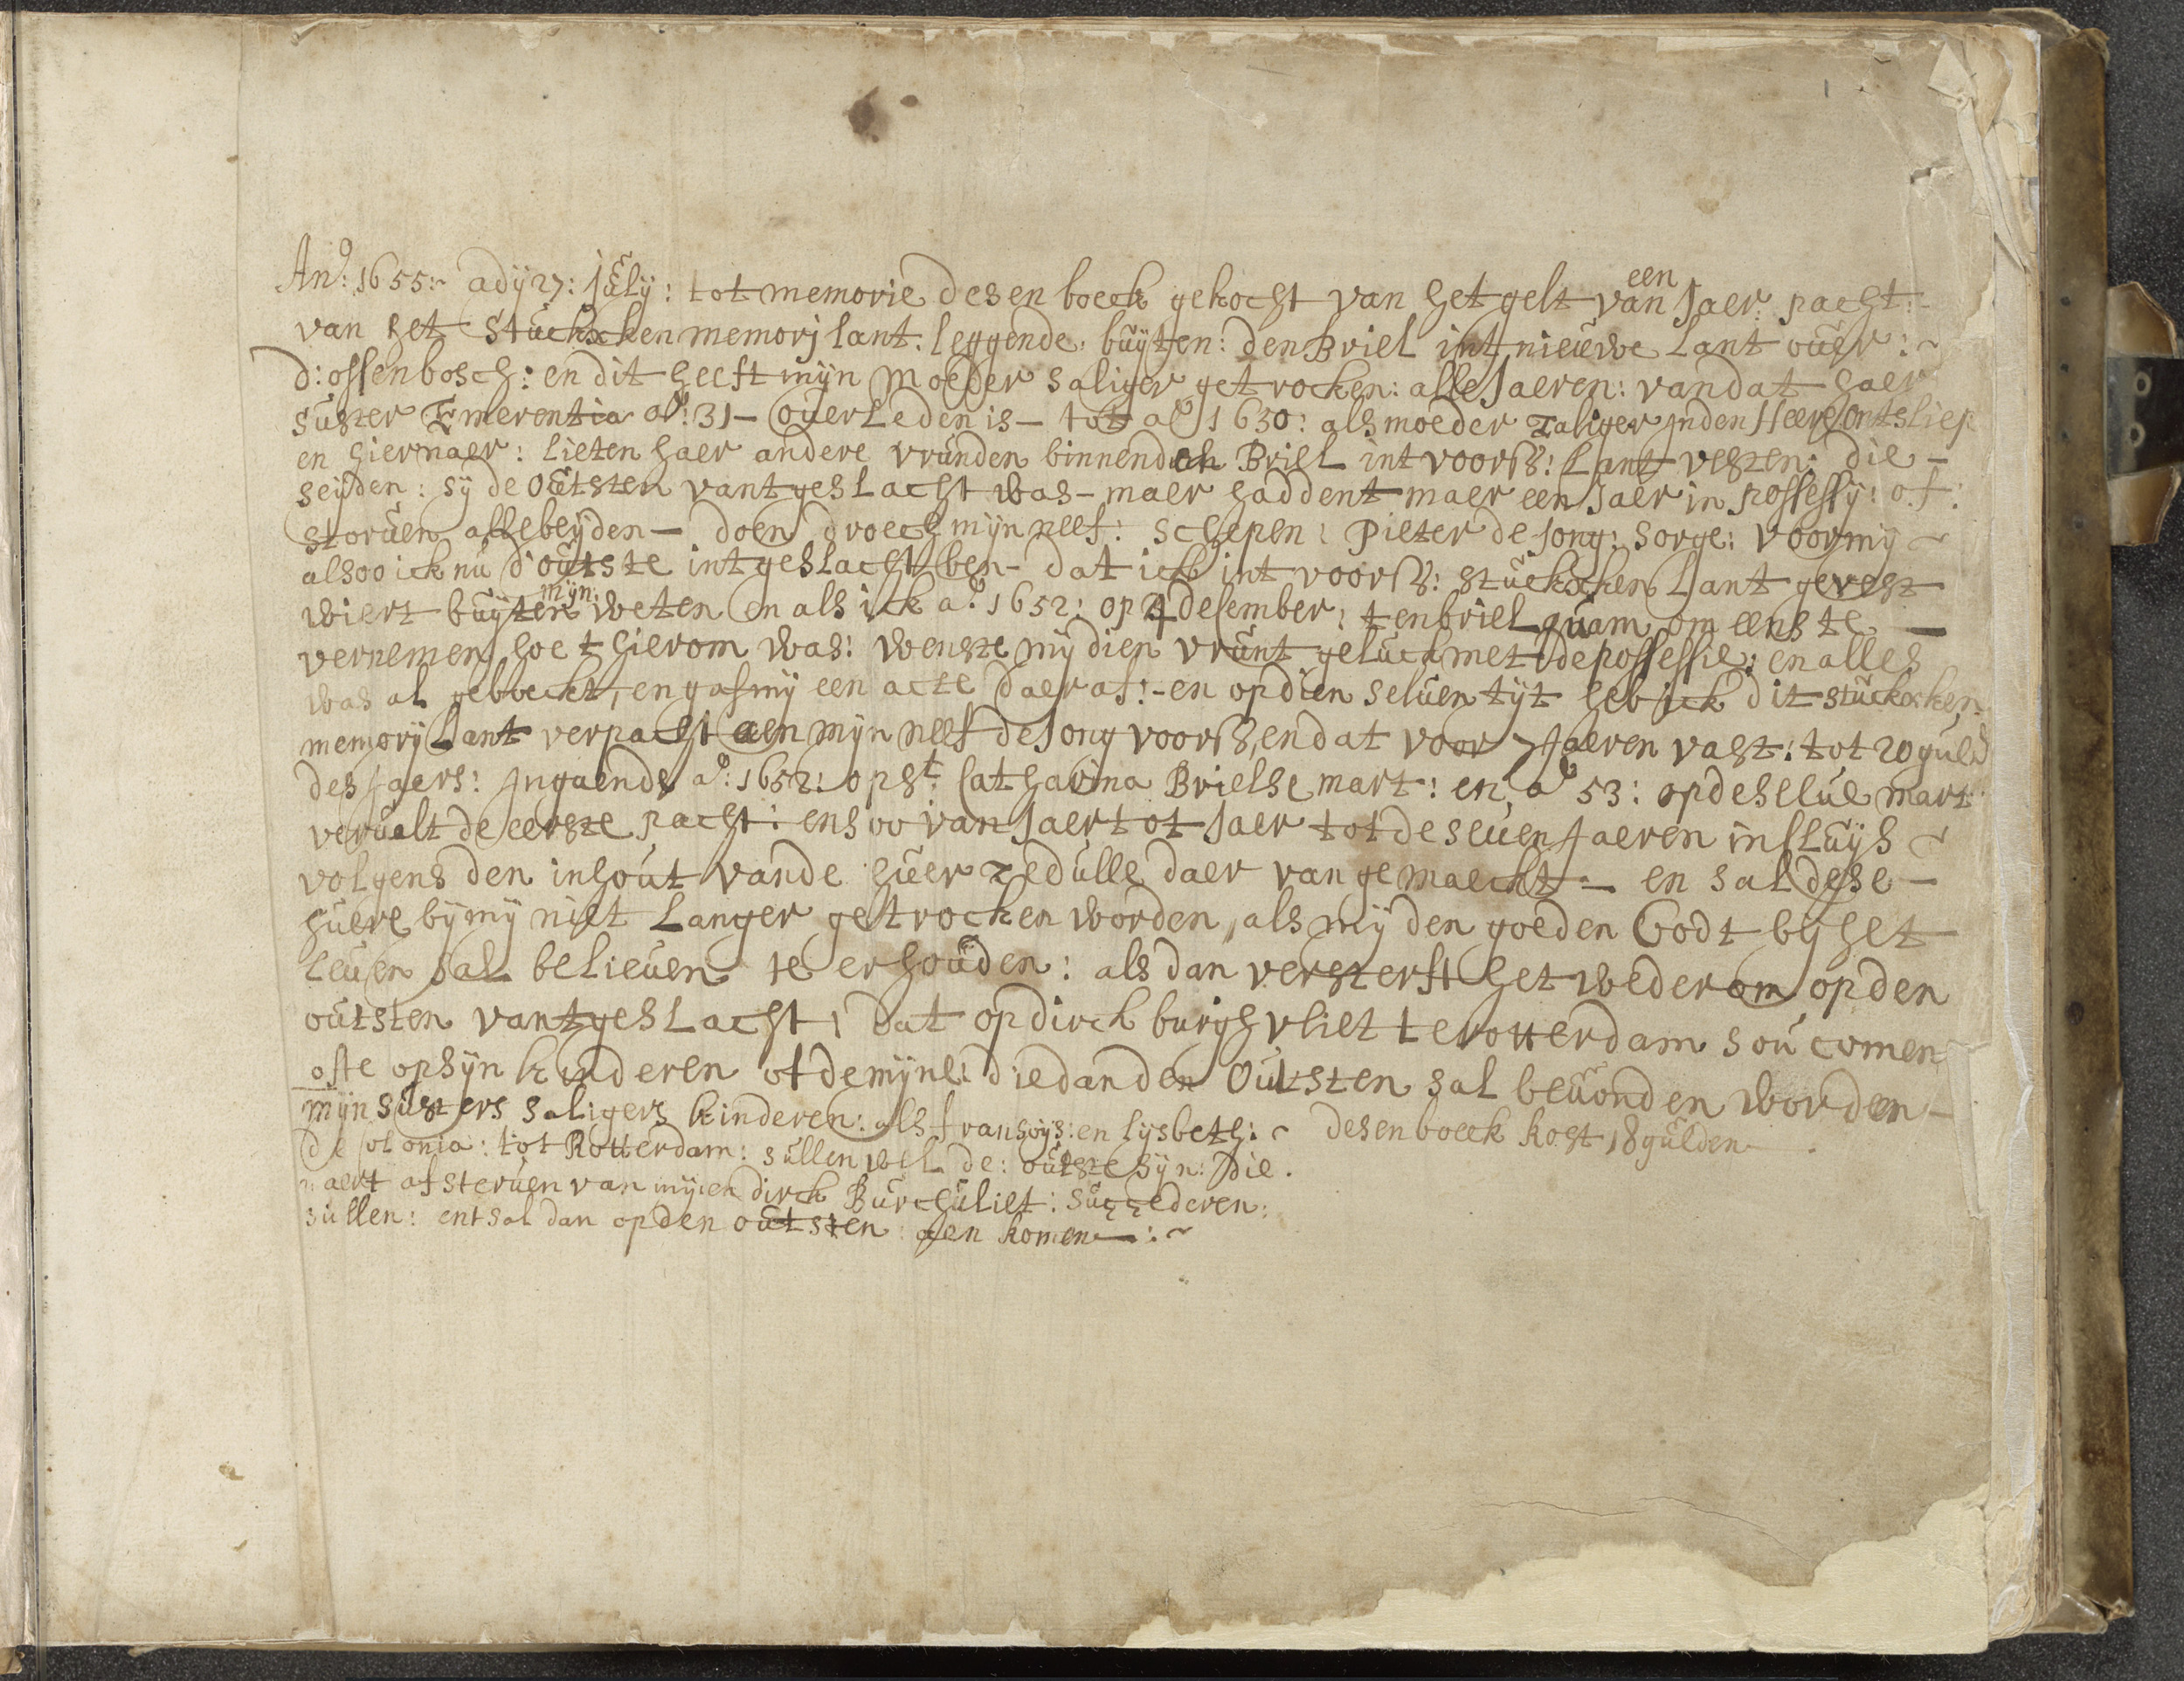 Anº: 1655:~ adÿ 27: Julÿ: tot memorie desen boeck gekocht van het gelt van een Jaer pacht:
van het stuckxken memorj lant. leggende. buÿten: den Briel int nieuwe Lant over:~
d:ossenbosch: en dit heeft mÿn moeder saliger getrocken: alle Jaeren: van dat haer
suster Emerentia aº: 31 - overleden is - tot aº 1630: als moeder zaliger Jn den Heere ontsliep
en hiernaer: lieten haer andere vrunden binnen den Briel int voors: Lant vesten: die -
seÿden: sÿ de outsten vant geslacht was - maer haddent maer een Jaer in possessÿ: of:
storven allebeÿden - doen droech mÿn neef: schepen: Pieter de Jong: sorge: voor mÿ ~
alsoo ick nu d'outste int geslacht ben - dat ick int voors: stuckxken Lant gevest
wiert buÿten mÿn: weten en als ick aº 1652: op 4 desember: ten briel quam om eens te -
vernemen hoe t hierom was: wenste mÿ dien vrunt geluck met de possessie: en alles
was al geboeckt, en gaf mÿ een acte daer af:- en op dien selven tÿt heb ick dit stuckxken
memorÿ Lant verpacht aen mÿn neef de Jong voors, en dat voor 7 Jaeren vast: tot 20 guld
des Jaers: Jngaende aº: 1652: op st Catharina Brielse mart: en, aº 53: op deselve mart
vervalt de eerste pacht: en soo van Jaer tot Jaer tot de seven Jaeren insluÿs ~
volgens den inhout vande huer zedulle daer van gemaeckt - en sal dese -
huere bÿ mÿ niet Langer getrocken worden, als mÿ den goeden Godt bÿ het
leven sal believen te erhouden: als dan versterft het wederom op den
outsten vant geslacht, dat op dirck burghvliet te rotterdam sou comen
ofte op sÿn kinderen of de mÿne: die dan den outsten sal bevonden worden -
mÿn susters saligers kinderen: als fransoÿs: en lÿsbeth:~ desen boeck kost 18 gulden
de Colonia: tot Rotterdam: sullen wel de: outste sÿn: die.
naert afsterven van mÿ en dirck Burchvliet: succederen:
sullen: ent sal dan op den outsten: aen komen -:~